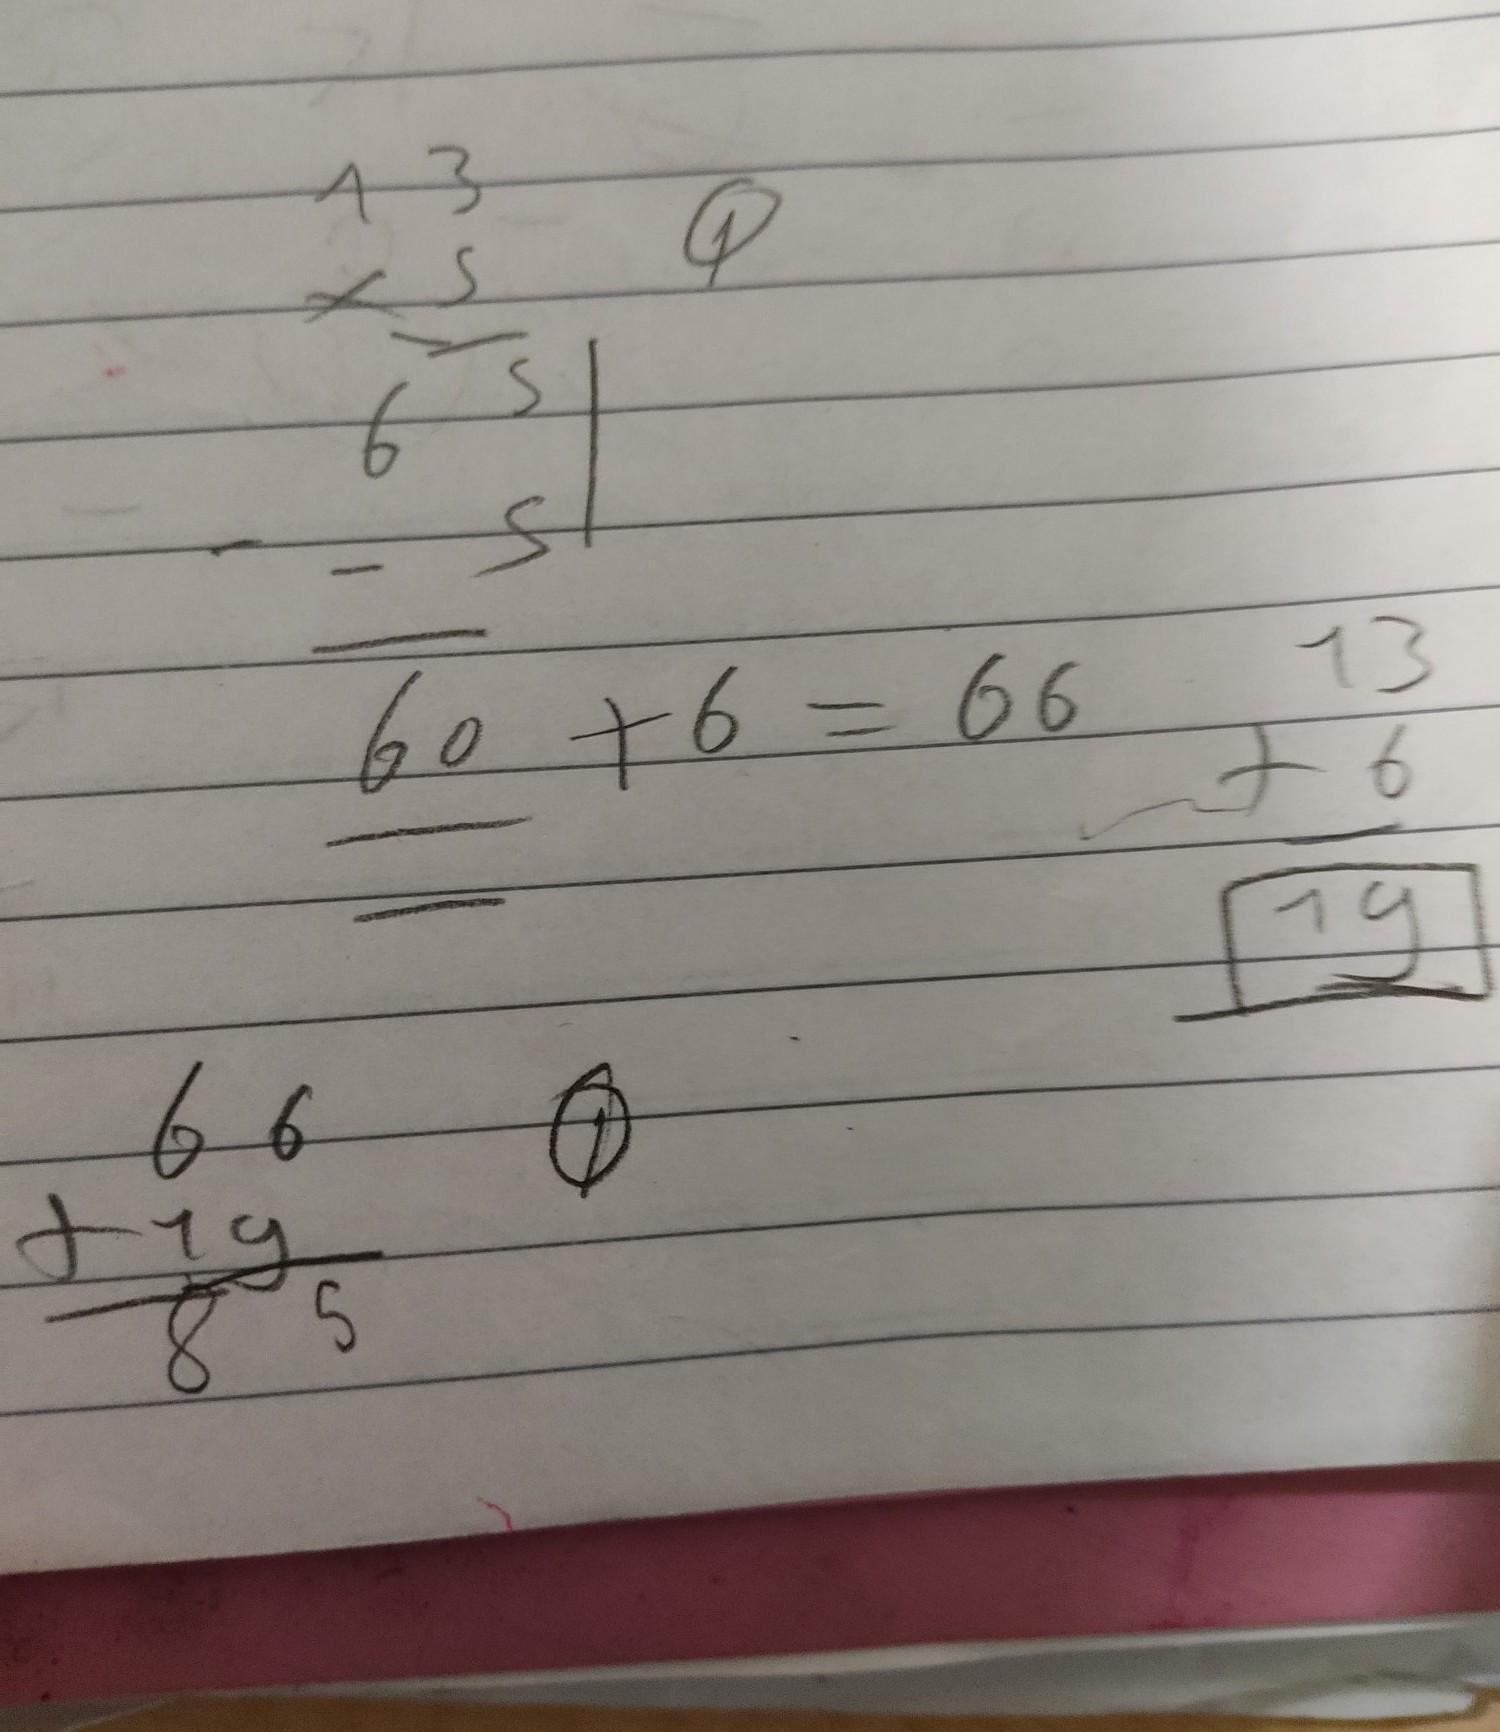 13
× 5 1
65
- 5
60 + 6 = 66
13
+ 6
19
66 1
+ 19
85